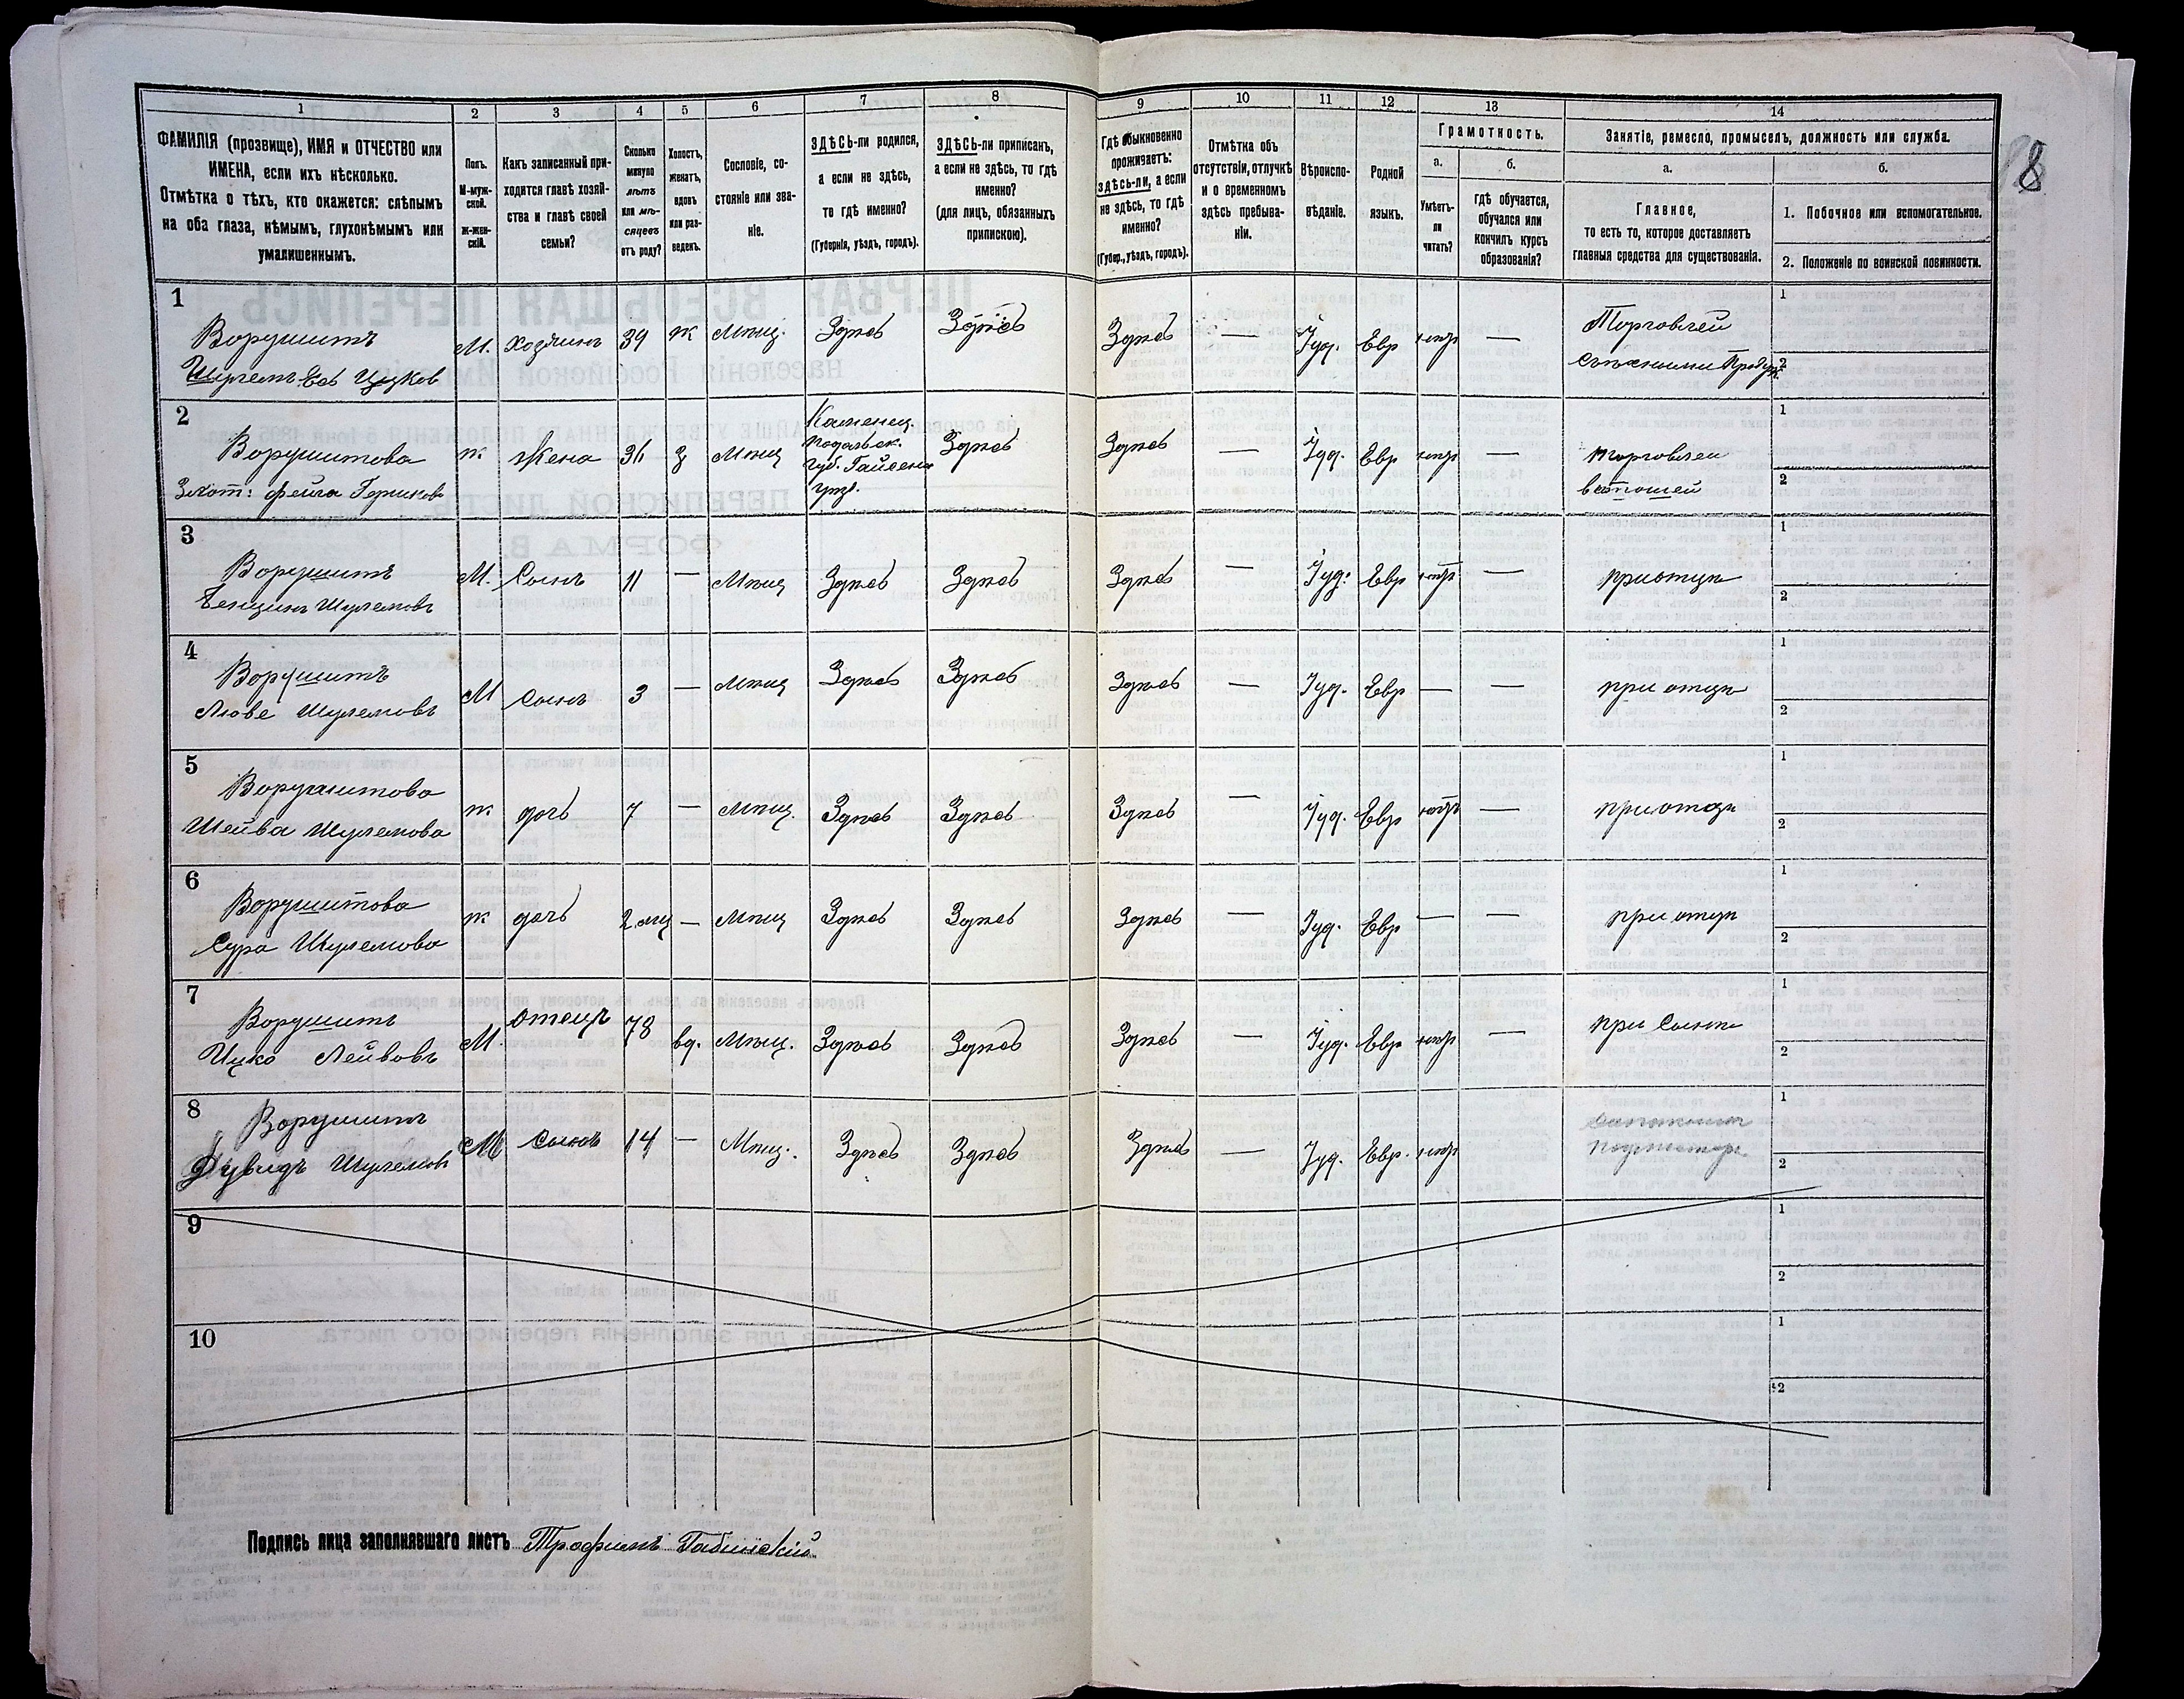 1
2
3
4
5
6
7
8
9
10
11
12
13
14
ФАМИЛІЯ (прозвище), ИМЯ и ОТЧЕСТВО или
ИМЕНА, если ихъ нѣсколько.
Отмѣтка о тѣхъ, кто окажется: слѣпымъ
на оба глаза, нѣмымъ, глухонѣмымъ или
умалишеннымъ.
Полъ.
М-муж-
ской.
Ж-жен-
скій.
Какъ записанный при-
ходится главѣ хозяй-
ства и главѣ своей
семьи?
Сколько
минуло
лѣтъ
или мѣ-
сяцевъ
отъ роду?
Холостъ,
женатъ,
вдовъ
или раз-
веденъ.
Сословіе, со-
стояніе или зва-
ніе.
ЗДѢСЬ-ли родился,
а если не здѣсь,
то гдѣ именно?
(Губернія, уѣздъ, городъ).
ЗДѢСЬ-ли приписанъ,
а если не здѣсь, то гдѣ
именно?
(для лицъ, обязанныхъ
припискою).
Гдѣ обыкновенно
проживаетъ:
здѣсь-ли, а если
не здѣсь, то гдѣ
именно?
(Губер., уѣздъ, городъ).
Отмѣтка объ
отсутствіи, отлучкѣ
и о временномъ
здѣсь пребыва-
ніи.
Вѣроиспо-
вѣданіе.
Родной
языкъ.
Грамотность.
а.
Умѣетъ-
ли
читать?
б.
гдѣ обучается,
обучался или
кончилъ курсъ
образованія?
Занятіе, ремесло, промыселъ, должность или служба.
а.
Главное,
то есть то, которое доставляетъ
главныя средства для существованія.
б.
1. Побочное или вспомогательное.
2. Положеніе по воинской повинности.
8
1
Ворушитъ
Шулемъ Цузков
М. Хозяинъ 39 ж Мѣщ. Здѣсь Здѣсь Здѣсь — Іуд. Евр —
Торговлей
Съѣсными
1
2
2
Ворушитова
Фейга
ж Жена з Мѣщ
Каменец.
Подольск.
губ. Гайсен
уѣз.
Здѣсь Здѣсь — Іуд. Евр —
торговлей
ветошей
1
2
3
Ворушитъ
Бенцинъ Шулемовъ
М. Сынъ 11 — Мѣщ Здѣсь Здѣсь Здѣсь — Іуд. Евр — при отцѣ
1
2
4
Ворушитъ
Лювe Шулемовъ
М Сынъ 3 — Мѣщ Здѣсь Здѣсь Здѣсь — Іуд. Евр — — при отцѣ
1
2
5
Ворушитова
Шейва Шулемова
ж дочь 7 — Мѣщ. Здѣсь Здѣсь Здѣсь — Іуд. Евр — при отцѣ
1
2
6
Ворушитова
Сура Шулемова
ж дочь 2 мѣц — Мѣщ Здѣсь Здѣсь Здѣсь — Іуд. Евр — — при отцѣ
1
2
7
Ворушитъ
Ицко Лейвовъ
М. отецъ 78 вд. Мѣщ. Здѣсь Здѣсь Здѣсь — Іуд. Евр — при сынѣ
1
2
8
Ворушитъ
Дувидъ Шулемовъ
М сынъ 14 — Мѣщ. Здѣсь Здѣсь Здѣсь — Іуд. Евр.
1
2
9
1
2
10
1
2
Подпись лица заполнявшаго листъ Трофимъ Габинскій